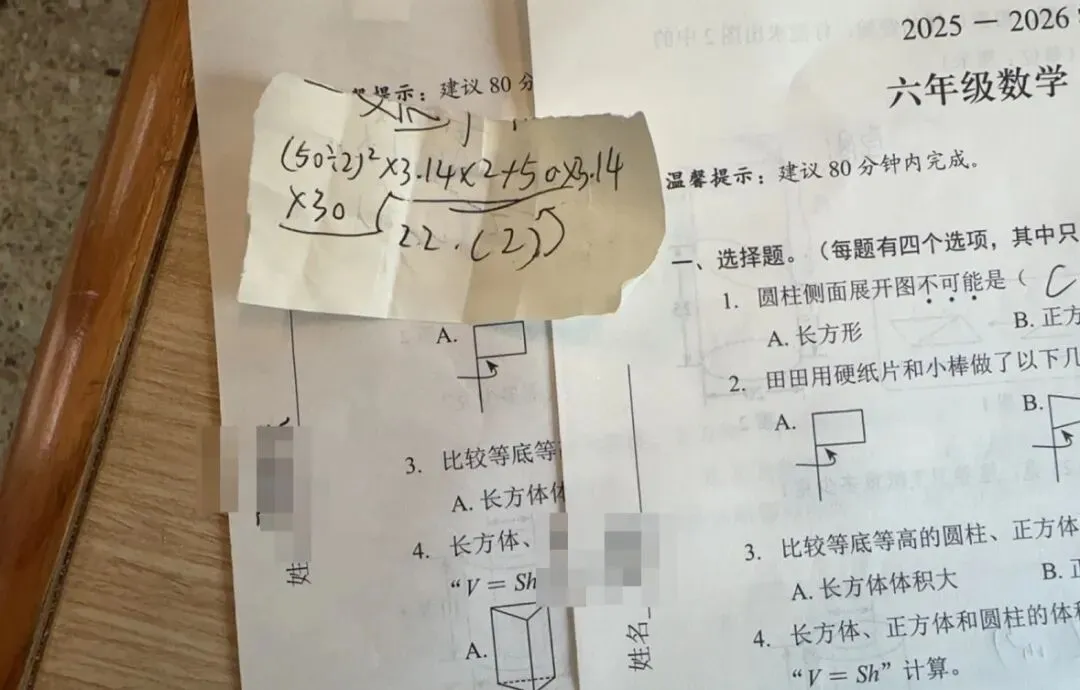 提示：建议 80 分
(50÷2)²×3.14×2+50×3.14
×30
22.(2)
A.
3. 比较等底等
A. 长方体体
4. 长方体、
“V = Sh
A.
姓
2025 － 2026
六年级数学
温馨提示：建议 80 分钟内完成。
一、选择题。（每题有四个选项，其中只
1. 圆柱侧面展开图不可能是（ C
A. 长方形
B. 正方
2. 田田用硬纸片和小棒做了以下几
A.
B.
3. 比较等底等高的圆柱、正方体
A. 长方体体积大
B. 正
4. 长方体、正方体和圆柱的体积
“V = Sh” 计算。
姓名